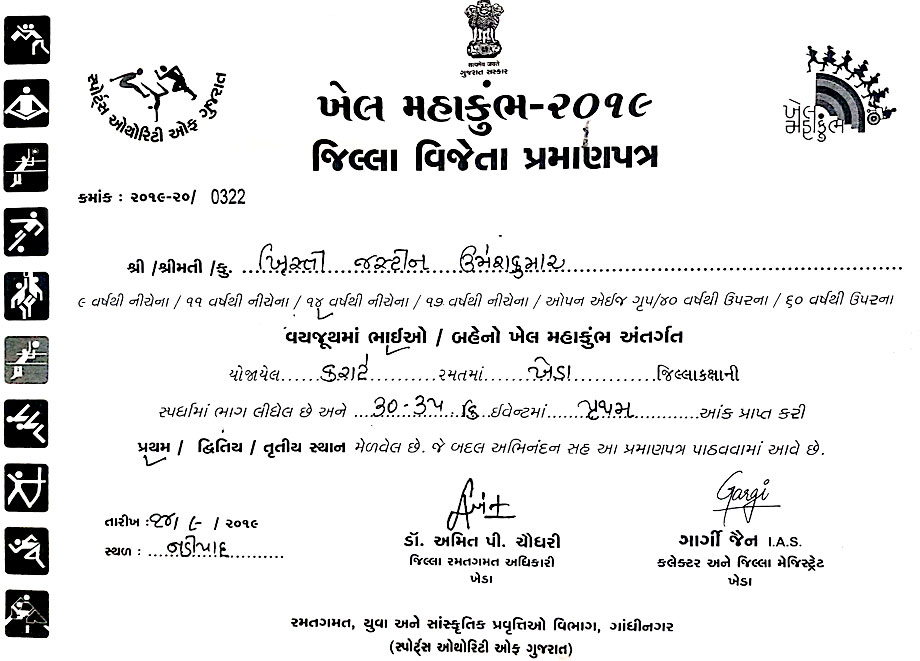 સત્યમેવ જયતે
ગુજરાત સરકાર
સ્પોર્ટ્સ ઓથોરિટી ઓફ ગુજરાત
ખેલ મહાકુંભ
ખેલ મહાકુંભ-૨૦૧૯
જિલ્લા વિજેતા પ્રમાણપત્ર
ક્રમાંક : ૨૦૧૯-૨૦/ 0322
શ્રી /શ્રીમતી /કુ. ખ્રિસ્તી જસ્ટીન ઉમેશકુમાર
૯ વર્ષથી નીચેના / ૧૧ વર્ષથી નીચેના / ૧૪ વર્ષથી નીચેના / ૧૭ વર્ષથી નીચેના / ઓપન એઈજ ગૃપ/૪૦ વર્ષથી ઉપરના / ૬૦ વર્ષથી ઉપરના
વયજૂથમાં ભાઈઓ / બહેનો ખેલ મહાકુંભ અંતર્ગત
યોજાયેલ કરાટે રમતમાં ખેડા જિલ્લાકક્ષાની
સ્પર્ધામાં ભાગ લીધેલ છે અને ૩૦-૩૫ કિ ઈવેન્ટમાં પ્રથમ આંક પ્રાપ્ત કરી
પ્રથમ / દ્વિતિય / તૃતીય સ્થાન મેળવેલ છે. જે બદલ અભિનંદન સહ આ પ્રમાણપત્ર પાઠવવામાં આવે છે.
Gargi
તારીખ : ૨૪/ ૯ / ૨૦૧૯
સ્થળ : નડીયાદ
ડૉ. અમિત પી. ચૌધરી
જિલ્લા રમતગમત અધિકારી
ખેડા
ગાર્ગી જૈન I.A.S.
કલેક્ટર અને જિલ્લા મેજિસ્ટ્રેટ
ખેડા
રમતગમત, યુવા અને સાંસ્કૃતિક પ્રવૃત્તિઓ વિભાગ, ગાંધીનગર
(સ્પોર્ટ્સ ઓથોરિટી ઓફ ગુજરાત)